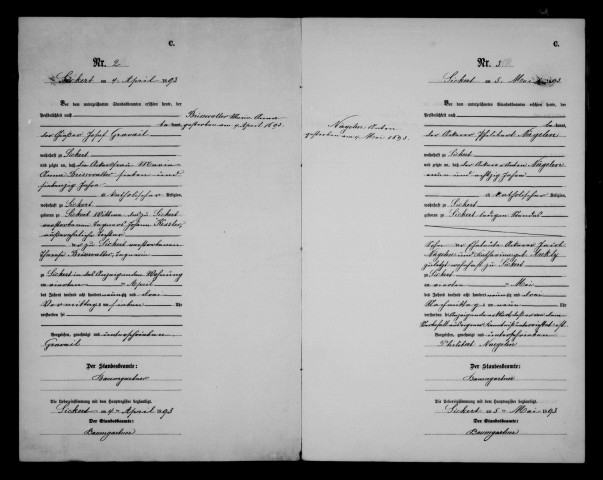 C.
Nr. 2
Sickert am 4. April 1893
Vor dem unterzeichneten Standesbeamten erschien heute, der
Persönlichkeit nach
kannt,
der Josef Gravail
wohnhaft zu Sickert
und zeigte an, daß die Ackerfrau Maria
Anna Briswalter sieben und
siebenzig Jahre
katholischer Religion,
wohnhaft zu Sickert
geboren zu Sickert Wittwe des zu Sickert
verstorbenen Johann Kessler,
Tochter
der zu Sickert verstorbenen
Briswalter,
zu Sickert in des Anzeigenden Wohnung
am vierten April
des Jahres tausend acht hundert neunzig und drei
Vormittags um sieben Uhr
verstorben sei
Vorgelesen, genehmigt und unterschrieben
Gravail
Der Standesbeamte:
Baumgartner
Die Uebereinstimmung mit dem Hauptregister beglaubigt.
Sickert am 4ten April 1893
Der Standesbeamte:
Baumgartner
Briswalter Maria Anna
gestorben am 4 April 1893.
C.
Nr. 3
Sickert am 5. Mai 1893
Vor dem unterzeichneten Standesbeamten erschien heute, der
Persönlichkeit nach
kannt,
der Ackerer Philibert Nägelen
wohnhaft zu Sickert
und zeigte an, daß der Ackerer Nägelen
Jahre
katholischer Religion,
wohnhaft zu Sickert
geboren zu Sickert ledigen Standes
Sohn der Eheleute Ackerer Jacob
Nägelen und Catharina geb.
zuletzt wohnhaft zu Sickert
zu Sickert
am vierten Mai
des Jahres tausend acht hundert neunzig und drei
Nachmittags um neun Uhr
verstorben sei
Vorgelesen, genehmigt und unterschrieben
Philibert Naegelen
Der Standesbeamte:
Baumgartner
Die Uebereinstimmung mit dem Hauptregister beglaubigt.
Sickert am 5ten Mai 1893
Der Standesbeamte:
Baumgartner
Nägelen
gestorben am 4 Mai 1893.